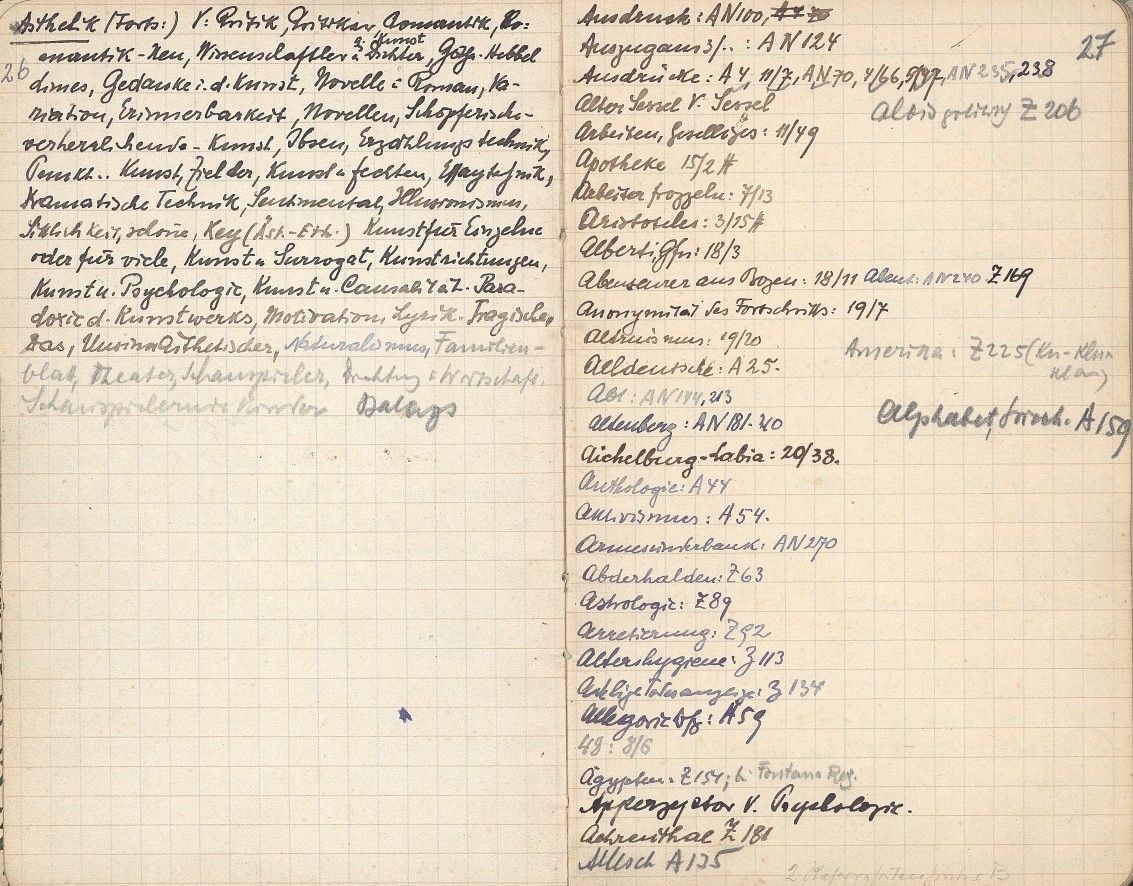 Asthetik (Forts:) V: Kritik, Kritiker, Romantik, Ro-
mantik-Neu, Wissenschaftler u. Dichter, Hebbel
u. Kunst
26
dimes, Gedanke i. d. Kunst, Novelle u Roman, Va-
riation, Erinnerbarkeit, Novellen, Schöpferisch-
Kunst, Ibsen, Erzählungstechnik,
Punkt.. Kunst, Ziel der, Kunst u fechten, Essaytechnik,
Dramatische Technik, Sentimental, Illusionismus,
Sittlichkeit, schöne, Key (Äst.-Eth.) Kunst für Einzelne
oder für viele, Kunst u Surrogat, Kunstrichtungen,
Kunst u. Psychologie, Kunst u. Causalität. Para-
doxie d. Kunstwerks, Motivation, Lyrik. Tragische,
Das, Unsinn Ästhetischer, Naturalismus, Familien-
blatt, Theater, Schauspieler, Dichtung u Wirtschaft.
Balazs
27
Ausdruck: AN100,
: AN124
Ausdrücke: A4, 11/7, AN70, 4/66, AN235, 238
Alter Sessel V. Sessel
Z 206
Arbeiten, Geselliges: 11/49
Apotheke 15/2 ff
Arbeiter frozzeln: 7/13
Aristoteles: 3/15 ff
Alberti, Gfn: 18/3
Abenteurer aus Bozen: 18/11 Abent: AN240 Z 169
Anonymität des Fortschritts: 19/7
Altruismus: 19/20
Amerika: Z 225 (Ku-Klux
Klan)
Alldeutsche: A 25.
Akt: AN144, 213
Alphabet, A 159
Altenberg: AN 181.
Aichelburg-Labia: 20/38.
Anthologie: A 44
Aktivismus: A 54.
Armesünderbank: AN270
Abderhalden: Z 63
Astrologie: Z 89
Arretierung: Z 92
Altershygiene: Z 113
Adelige Todesanzeige: Z 134
A 59
Ägypten: Z 154; Fontana
Apperzeptor V. Psychologie.
Aehrenthal Z 181
Allesch A 135